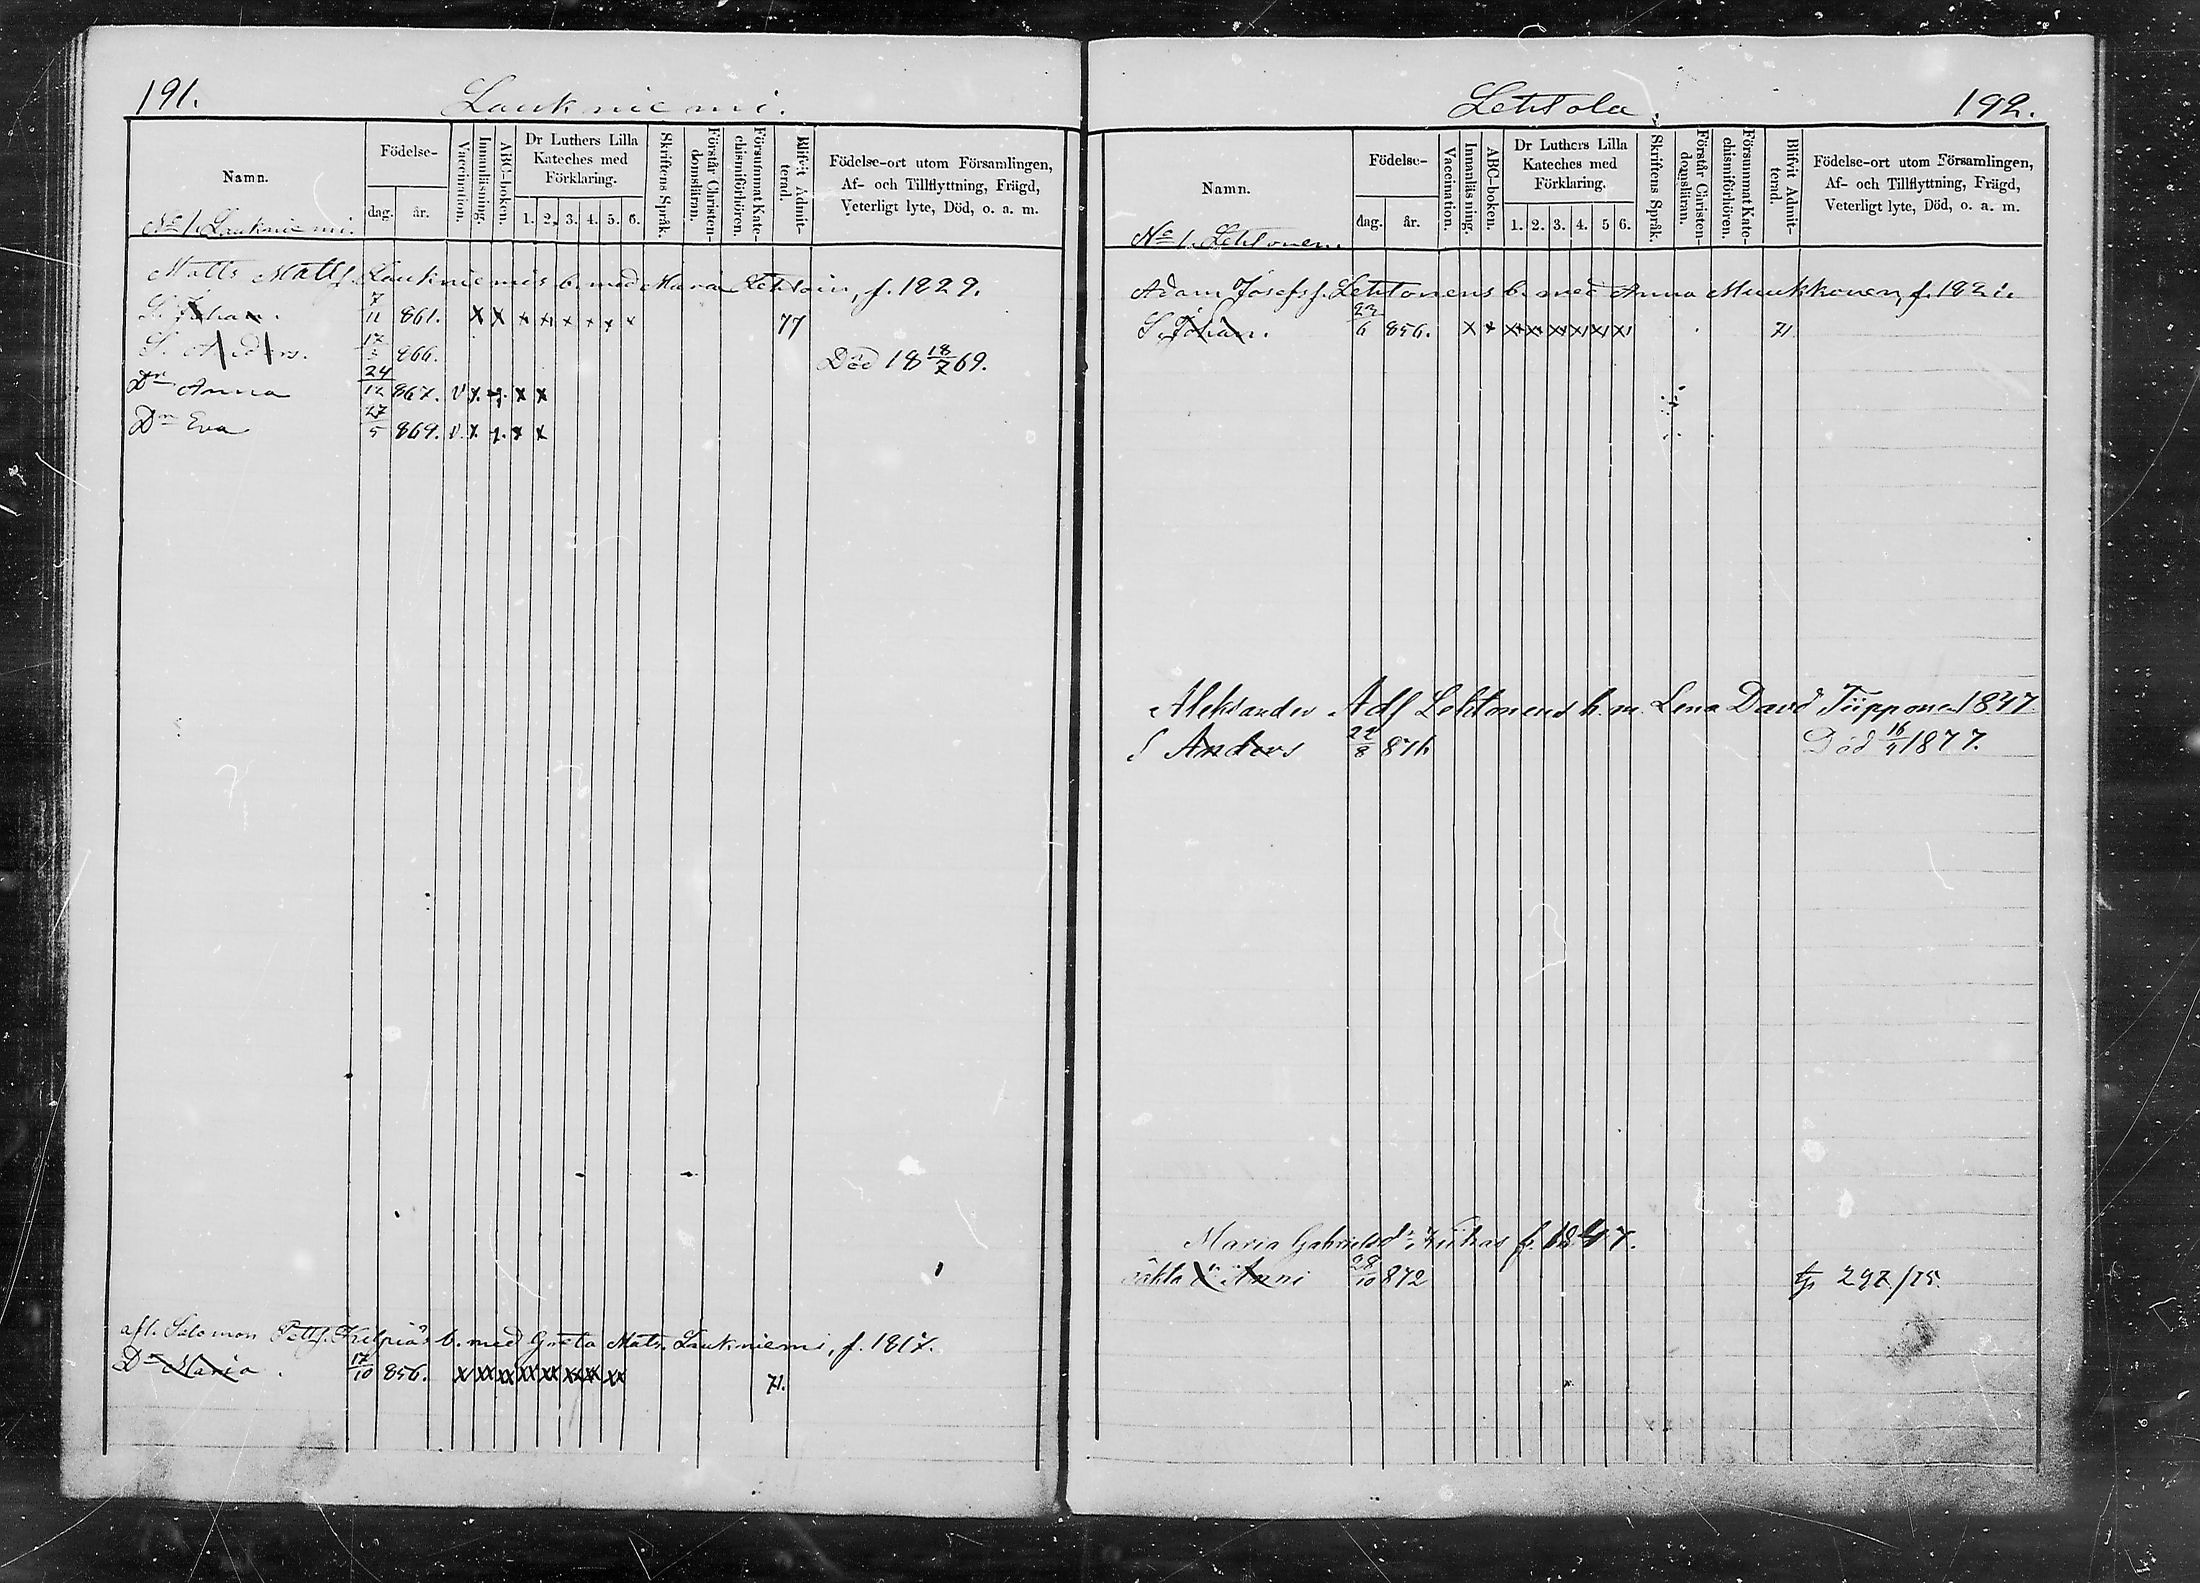 191.
Laukniemi.
Namn.
Födelse-
dag.
år.
Vaccination.
Innanläsning.
ABC-boken.
Dr Luthers Lilla Kateches med Förklaring.
1. 2. 3. 4. 5. 6.
Skriftens Språk.
Förstår Christendomsläran.
Försummat Katechismiförhören.
Blifvit Admitterad.
Födelse-ort utom Församlingen,
Af- och Tillflyttning, Frägd,
Veterligt lyte, Död, o. a. m.
No 1. Laukniemi.
Matts Mattsf. Laukniemis b. med Maria Lehtoin, f. 1829.
S. Johan. 7/11 861. x x x x x x x x 77
S. Anders. 17/3 866. Död 18 18/7 69.
Dr Anna 24/12 867. v x. x x
Dr Eva 27/5 869. v. x. x x
afl. Salomon Kelpiäs b. med Greta Mats. Laukniemi, f. 1817.
Dr Maria. 17/10 856. x xx xx xx xx xx xx xx 71.
192.
Lehtola.
Namn.
Födelse-
dag.
år.
Vaccination.
Innanläsning.
ABC-boken.
Dr Luthers Lilla Kateches med Förklaring.
1. 2. 3. 4. 5 6.
Skriftens Språk.
Förstår Christendomsläran.
Försummat Katechismiförhören.
Blifvit Admitterad.
Födelse-ort utom Församlingen,
Af- och Tillflyttning, Frägd,
Veterligt lyte, Död, o. a. m.
No 1. Lehtonen.
Adam Josefsf. Lehtonens b. med Anna Muukkonen, f.
S. Johan. 23/6 856. x x x x x x x x 71.
Aleksander Adf Lehtonens b. m. Lena David Tiippone 1847
S Anders 22/8 876 Död 16/4 1877.
Maria Gabrielsd. Kiihas f. 1847.
oäkta Dr Anni 28/10 872 297/75.